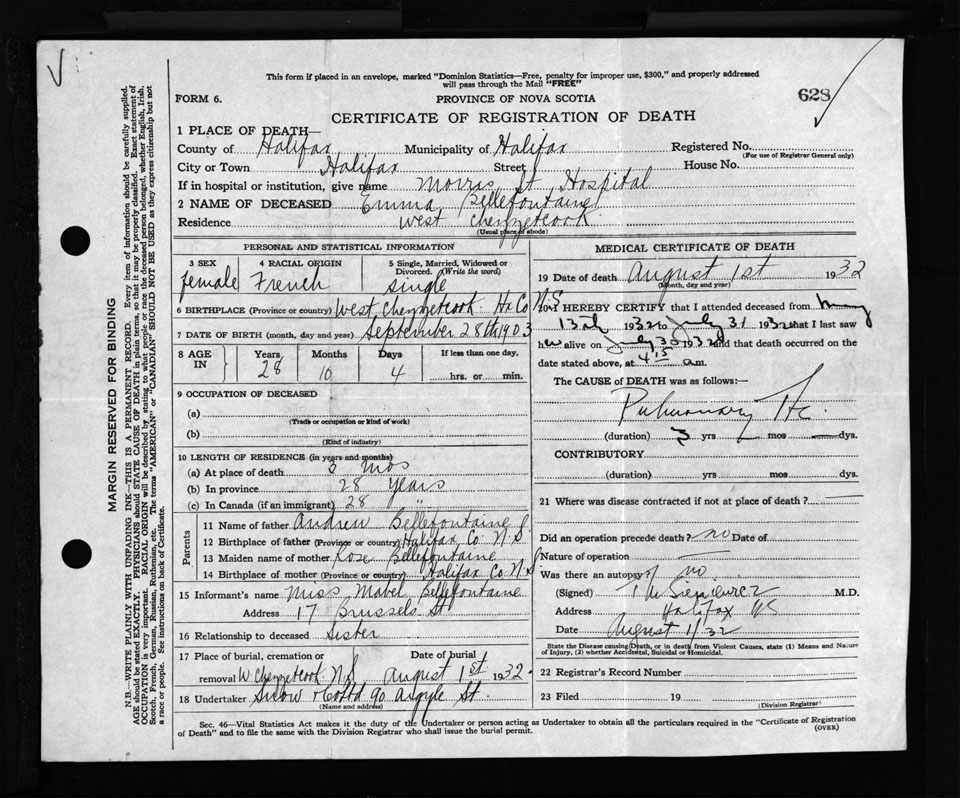 This form if placed in an envelope, marked "Dominion Statistics—Free, penalty for improper use, $300," and properly addressed
will pass through the Mail "FREE"
FORM 6. PROVINCE OF NOVA SCOTIA 628
CERTIFICATE OF REGISTRATION OF DEATH
1 PLACE OF DEATH—
County of Halifax Municipality of Halifax Registered No.
(For use of Registrar General only)
City or Town Halifax Street House No.
If in hospital or institution, give name Morris St Hospital
2 NAME OF DECEASED Emma Bellefontaine
Residence West Chezzetcook
(Usual place of abode)
PERSONAL AND STATISTICAL INFORMATION
3 SEX 4 RACIAL ORIGIN 5 Single, Married, Widowed or
Divorced. (Write the word)
female French single
6 BIRTHPLACE (Province or country) West Chezzetcook Hx Co N.S
7 DATE OF BIRTH (month, day and year) September 28th 1903
8 AGE IN Years Months Days If less than one day,
28 10 4 hrs. or min.
9 OCCUPATION OF DECEASED
(a)
(Trade or occupation or kind of work)
(b)
(Kind of industry)
10 LENGTH OF RESIDENCE (in years and months)
(a) At place of death 3 mos
(b) In province 28 Years
(c) In Canada (if an immigrant) 28 "
Parents
11 Name of father Andrew Bellefontaine
12 Birthplace of father (Province or country) Halifax Co N.S.
13 Maiden name of mother Rose Bellefontaine
14 Birthplace of mother (Province or country) Halifax Co N.S.
15 Informant's name Miss Mabel Bellefontaine
Address 17 Brussels St
16 Relationship to deceased Sister
17 Place of burial, cremation or Date of burial
removal W. Chezzetcook N.S August 1st 1932
18 Undertaker Snow & Co Ltd 90 Argyle St.
(Name and address)
MEDICAL CERTIFICATE OF DEATH
19 Date of death August 1st 1932
(Month, day and year)
20 I HEREBY CERTIFY that I attended deceased from
13th 1932 to July 31 1932 that I last saw
h alive on July 30 1932 and that death occurred on the
date stated above, at 4 15 am.
The CAUSE of DEATH was as follows:—
Pulmonary
(duration) 3 yrs mos dys.
CONTRIBUTORY
(duration) yrs mos dys.
21 Where was disease contracted if not at place of death?
Did an operation precede death? no Date of
Nature of operation
Was there an autopsy? no
(Signed) M.D.
Address Halifax NS
Date August 1/32
State the Disease causing Death, or in death from Violent Causes, state (1) Means and Nature
of Injury, (2) whether Accidental, Suicidal or Homicidal.
22 Registrar's Record Number
23 Filed 19
(Division Registrar)
Sec. 46—Vital Statistics Act makes it the duty of the Undertaker or person acting as Undertaker to obtain all the particulars required in the "Certificate of Registration
of Death" and to file the same with the Division Registrar who shall issue the burial permit. (OVER)
MARGIN RESERVED FOR BINDING
N.B.—WRITE PLAINLY WITH UNFADING INK—THIS IS A PERMANENT RECORD. Every item of information should be carefully supplied.
AGE should be stated EXACTLY. PHYSICIANS should STATE CAUSE OF DEATH in plain terms, so that it may be properly classified. Exact statement of
OCCUPATION is very important. RACIAL ORIGIN will be described by stating to what people or race the deceased person belonged, whether English, Irish,
Scotch, French, German, Russian, Ruthenian, etc. The terms "AMERICAN" or "CANADIAN" SHOULD NOT BE USED as they express citizenship but not
a race or people. See instructions on back of Certificate.